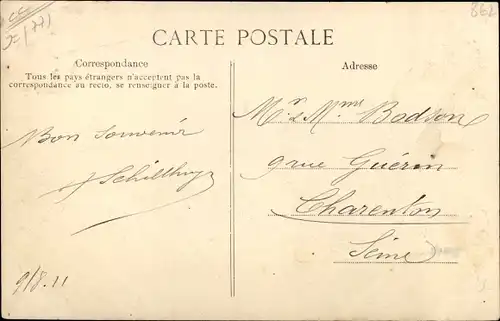 CARTE POSTALE
Correspondance
Tous les pays étrangers n'acceptent pas la
correspondance au recto, se renseigner à la poste.
Adresse
Bon Souvenir
9/8.11
Mr & Mme Badson
9 rue Guérin
Charenton
Seine